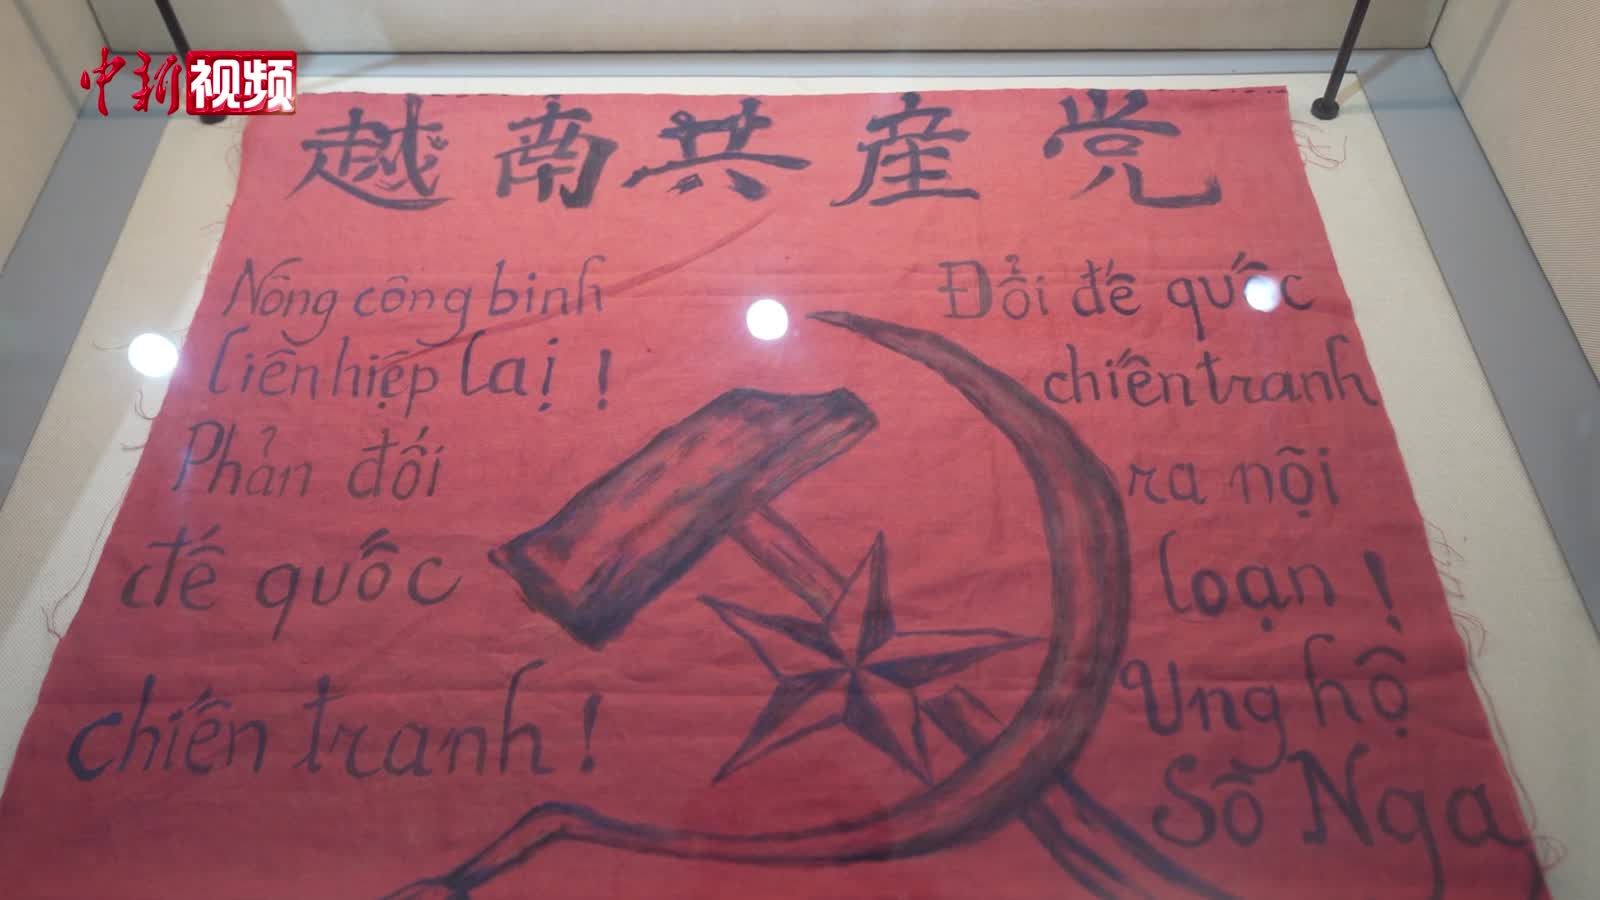 中新视频
越南共産党
Nông công binh
liên hiệp lại !
Phản đối
đế quốc
chiến tranh !
Đổi đế quốc
chiến tranh
ra nội
loạn !
Ủng hộ
Sô Nga